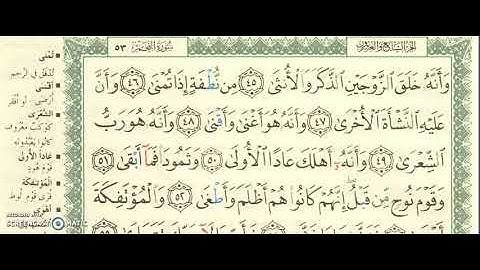 الجزء السابع والعشرون
سورة النجم ٥٣
وَأَنَّهُۥ خَلَقَ ٱلزَّوْجَيْنِ ٱلذَّكَرَ وَٱلْأُنثَىٰ ٤٥ مِن نُّطْفَةٍ إِذَا تُمْنَىٰ ٤٦ وَأَنَّ
عَلَيْهِ ٱلنَّشْأَةَ ٱلْأُخْرَىٰ ٤٧ وَأَنَّهُۥ هُوَ أَغْنَىٰ وَأَقْنَىٰ ٤٨ وَأَنَّهُۥ هُوَ رَبُّ
ٱلشِّعْرَىٰ ٤٩ وَأَنَّهُۥٓ أَهْلَكَ عَادًا ٱلْأُولَىٰ ٥٠ وَثَمُودَا۟ فَمَآ أَبْقَىٰ ٥١
وَقَوْمَ نُوحٍ مِّن قَبْلُ إِنَّهُمْ كَانُوا۟ هُمْ أَظْلَمَ وَأَطْغَىٰ ٥٢ وَٱلْمُؤْتَفِكَةَ
تُمْنَى
تدفق في الرحم
أَقْنَى
أرضى أو أفقر
الشِّعْرَى
كوكب معروف
كانوا يعبدونه
عاداً الأولى
قوم هود
المؤتفكة
قرى قوم لوط
أهوى
RECORDED WITH
SCREENCAST-O-MATIC